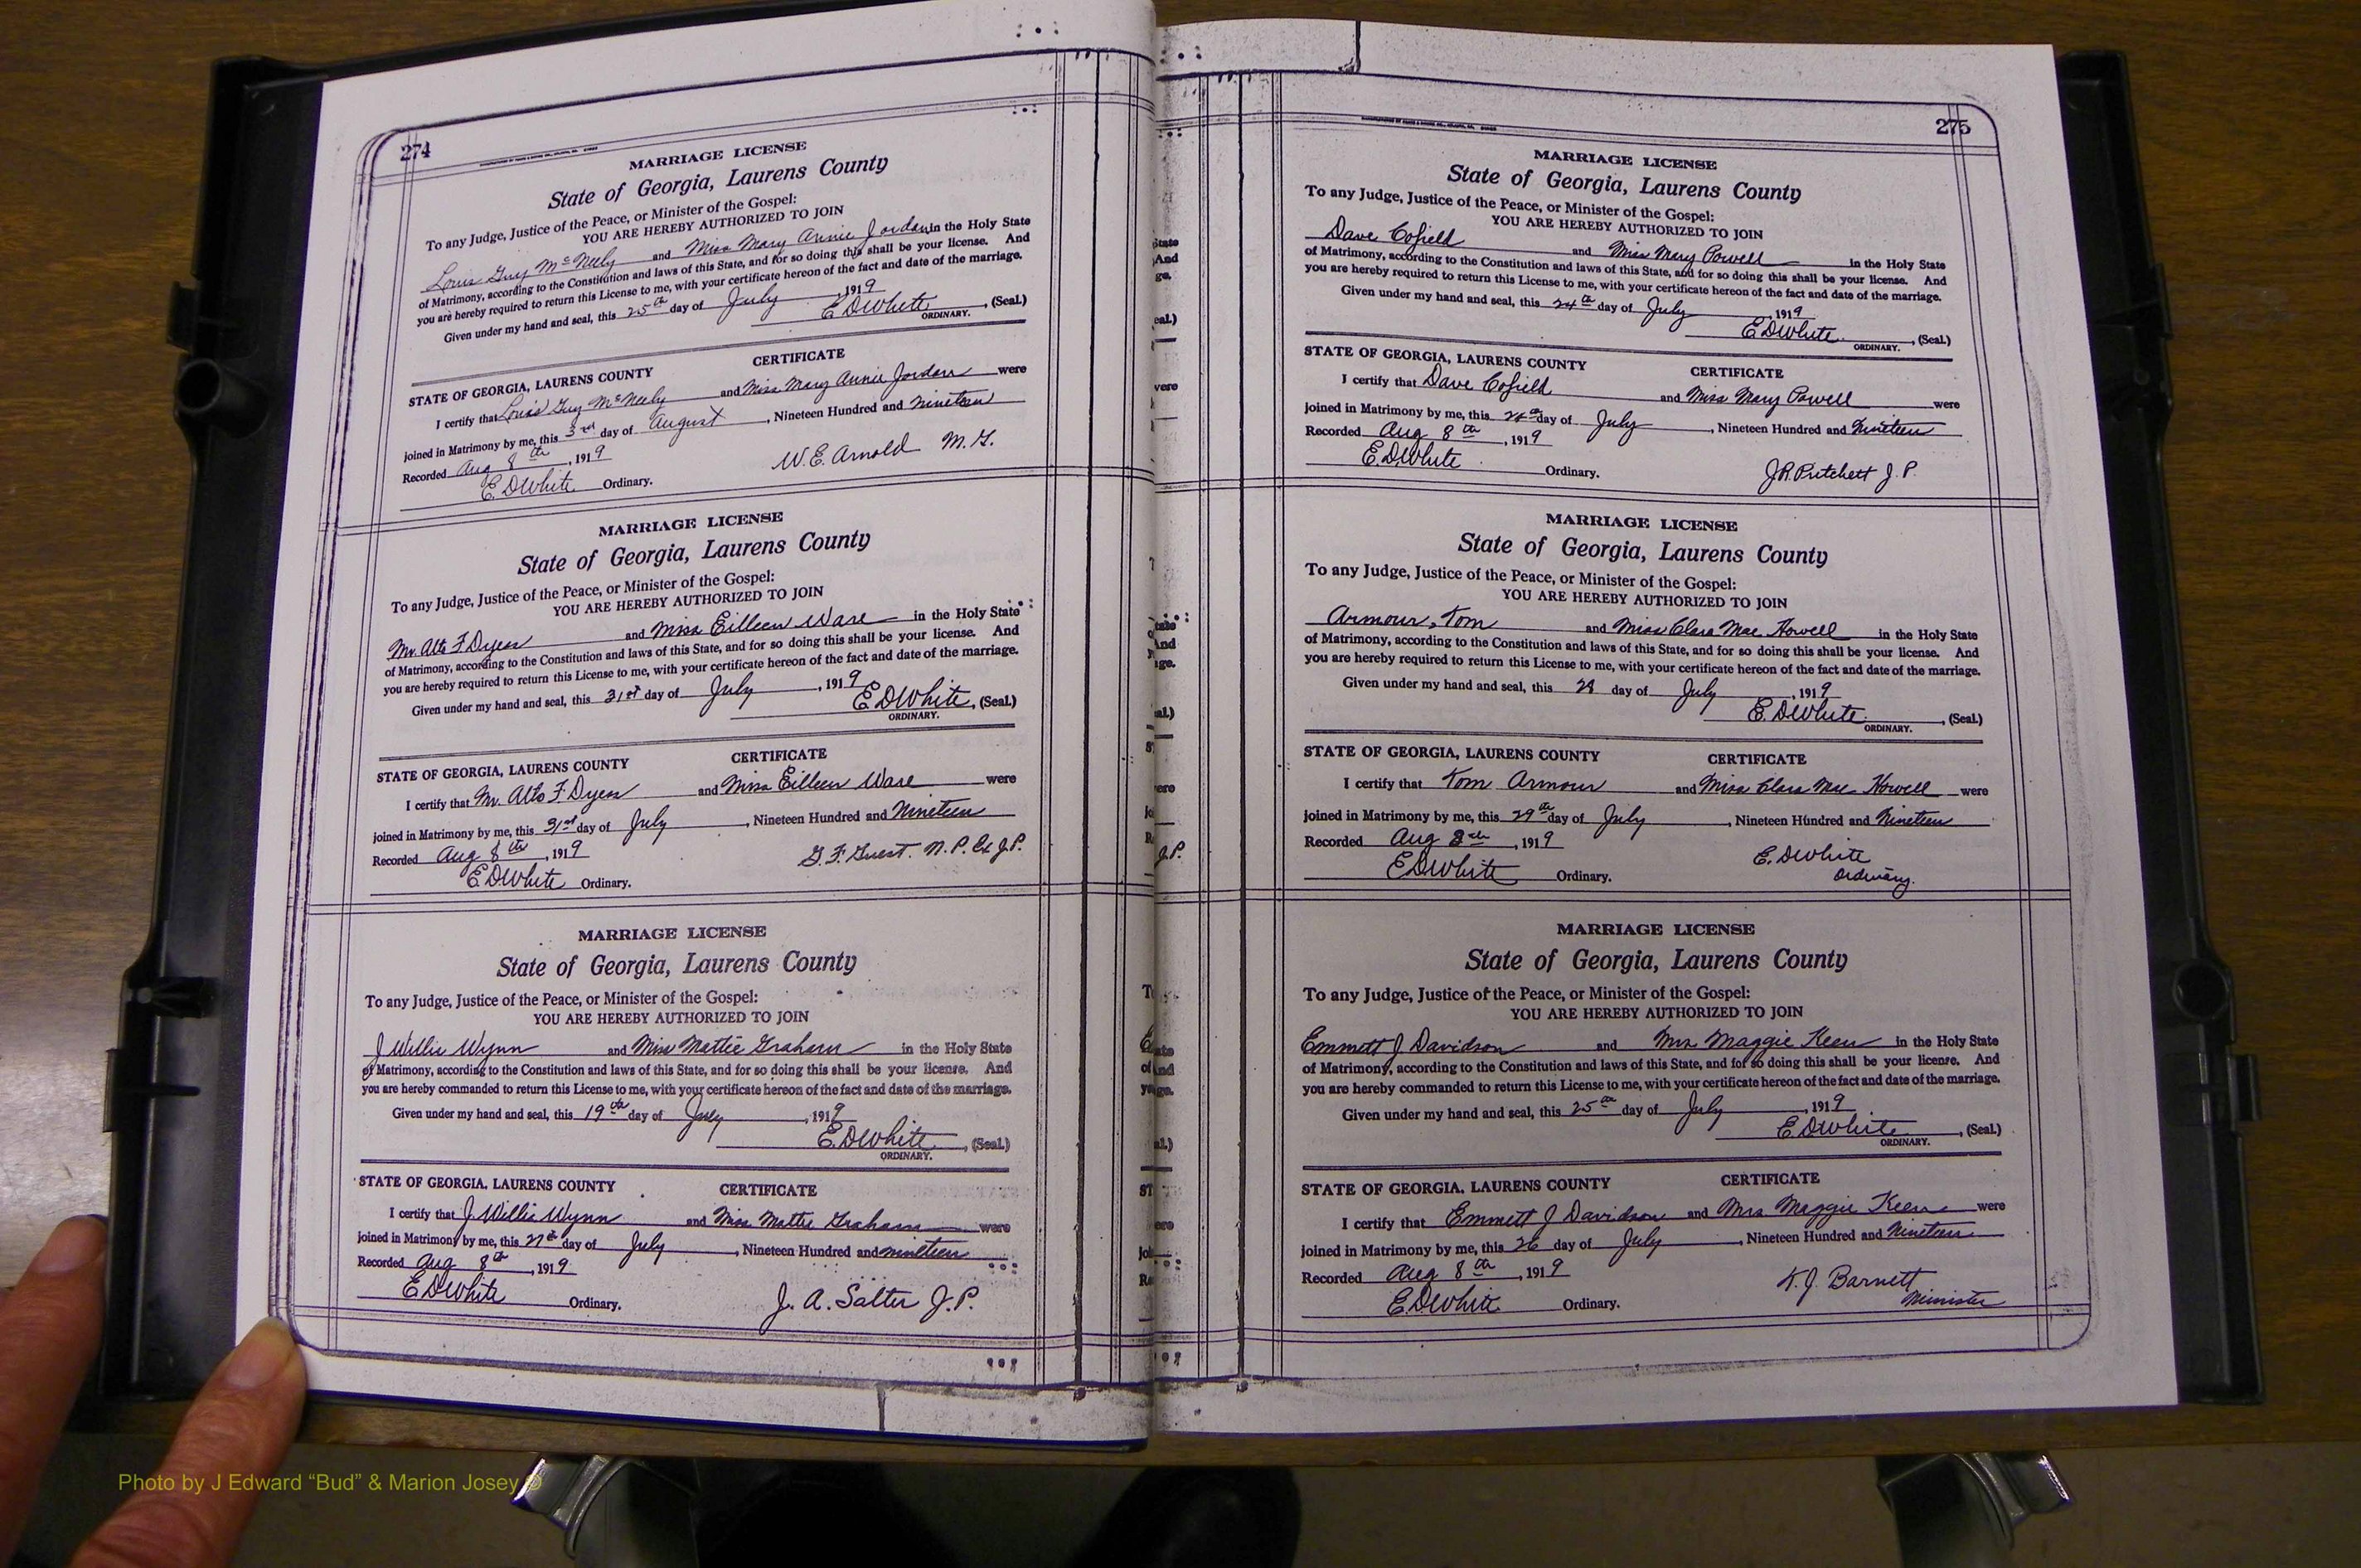 274
MARRIAGE LICENSE
State of Georgia, Laurens County
To any Judge, Justice of the Peace, or Minister of the Gospel:
YOU ARE HEREBY AUTHORIZED TO JOIN
Louis Guy McNeely and Miss Mary Annie Jordan in the Holy State
of Matrimony, according to the Constitution and laws of this State, and for so doing this shall be your license. And
you are hereby required to return this License to me, with your certificate hereon of the fact and date of the marriage.
Given under my hand and seal, this 25th day of July, 1919
E.D.White, (Seal.)
ORDINARY.
CERTIFICATE
STATE OF GEORGIA, LAURENS COUNTY
I certify that Louis Guy McNeely and Miss Mary Annie Jordan were
joined in Matrimony by me, this 3rd day of August, Nineteen Hundred and nineteen
Recorded Aug 8th, 1919
W.E. Arnold M.G.
E.D.White Ordinary.
MARRIAGE LICENSE
State of Georgia, Laurens County
To any Judge, Justice of the Peace, or Minister of the Gospel:
YOU ARE HEREBY AUTHORIZED TO JOIN
Mr. Alto F Dyess and Miss Eilleen Ware in the Holy State
of Matrimony, according to the Constitution and laws of this State, and for so doing this shall be your license. And
you are hereby required to return this License to me, with your certificate hereon of the fact and date of the marriage.
Given under my hand and seal, this 31st day of July, 1919
E.D.White, (Seal.)
ORDINARY.
CERTIFICATE
STATE OF GEORGIA, LAURENS COUNTY
I certify that Mr. Alto F. Dyess and Miss Eilleen Ware were
joined in Matrimony by me, this 31st day of July, Nineteen Hundred and Nineteen
Recorded Aug 8th, 1919
G.F. Guest. N.P. Ex J.P.
E.D.White Ordinary.
MARRIAGE LICENSE
State of Georgia, Laurens County
To any Judge, Justice of the Peace, or Minister of the Gospel:
YOU ARE HEREBY AUTHORIZED TO JOIN
J Willie Wynn and Miss Mattie Graham in the Holy State
of Matrimony, according to the Constitution and laws of this State, and for so doing this shall be your license. And
you are hereby commanded to return this License to me, with your certificate hereon of the fact and date of the marriage.
Given under my hand and seal, this 19th day of July, 1919
E.D.White, (Seal.)
ORDINARY.
STATE OF GEORGIA, LAURENS COUNTY CERTIFICATE
I certify that J. Willie Wynn and Miss Mattie Graham were
joined in Matrimony by me, this 27th day of July, Nineteen Hundred and nineteen
Recorded Aug 8th, 1919
E.D.White Ordinary.
J. A. Salter J.P.
275
MARRIAGE LICENSE
State of Georgia, Laurens County
To any Judge, Justice of the Peace, or Minister of the Gospel:
YOU ARE HEREBY AUTHORIZED TO JOIN
Dave Cofield and Miss Mary Powell in the Holy State
of Matrimony, according to the Constitution and laws of this State, and for so doing this shall be your license. And
you are hereby required to return this License to me, with your certificate hereon of the fact and date of the marriage.
Given under my hand and seal, this 24th day of July, 1919
E.D.White, (Seal.)
ORDINARY.
STATE OF GEORGIA, LAURENS COUNTY
CERTIFICATE
I certify that Dave Cofield and Miss Mary Powell were
joined in Matrimony by me, this 24th day of July, Nineteen Hundred and Nineteen
Recorded Aug 8th, 1919
E.D.White Ordinary.
J.R. Pritchett J.P.
MARRIAGE LICENSE
State of Georgia, Laurens County
To any Judge, Justice of the Peace, or Minister of the Gospel:
YOU ARE HEREBY AUTHORIZED TO JOIN
Armour, Tom and Miss Clara Mae Howell in the Holy State
of Matrimony, according to the Constitution and laws of this State, and for so doing this shall be your license. And
you are hereby required to return this License to me, with your certificate hereon of the fact and date of the marriage.
Given under my hand and seal, this 28 day of July, 1919
E.D.White, (Seal.)
ORDINARY.
STATE OF GEORGIA, LAURENS COUNTY CERTIFICATE
I certify that Tom Armour and Miss Clara Mae Howell were
joined in Matrimony by me, this 29th day of July, Nineteen Hundred and Nineteen
Recorded Aug 8th, 1919
E.D.White
E.D.White Ordinary.
Ordinary.
MARRIAGE LICENSE
State of Georgia, Laurens County
To any Judge, Justice of the Peace, or Minister of the Gospel:
YOU ARE HEREBY AUTHORIZED TO JOIN
Emmett J Davidson and Mrs Maggie Keen in the Holy State
of Matrimony, according to the Constitution and laws of this State, and for so doing this shall be your license. And
you are hereby commanded to return this License to me, with your certificate hereon of the fact and date of the marriage.
Given under my hand and seal, this 25th day of July, 1919
E.D.White, (Seal.)
ORDINARY.
STATE OF GEORGIA, LAURENS COUNTY CERTIFICATE
I certify that Emmett J Davidson and Mrs Maggie Keen were
joined in Matrimony by me, this 26 day of July, Nineteen Hundred and Nineteen
Recorded Aug 8th, 1919
K.J. Barnett
Minister
E.D.White Ordinary.
Photo by J Edward “Bud” & Marion Josey ©